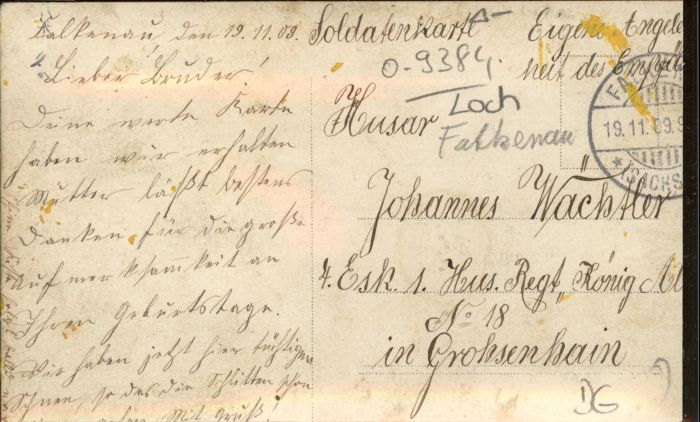 Falkenau, den 19.11.09.
Lieber Bruder!
Deine werte Karte
haben wir erhalten
Mutter läßt bestens
Danken für die große
Aufmerksamkeit an
Ihren Geburtstage.
Wir haben jetzt hier tüchtigen
Schnee, so das die Schlitten schon
gehen. Mit Gruß!
Soldatenkarte
Eigene Angele
heit des Empfä
O-9384
Loch
Falkenau
Husar
Johannes Wächtler
4. Esk 1. Hus. Regt „König Al
No 18
in Grohsenhain
FA
19.11.09.9
*(SACHS
DG